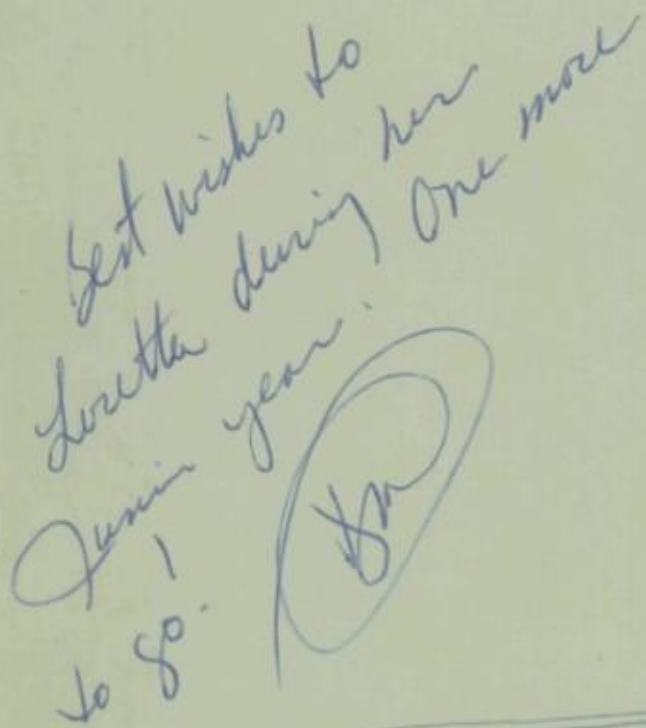 Best wishes to
Loretta during her
Junior year. One more
to go!